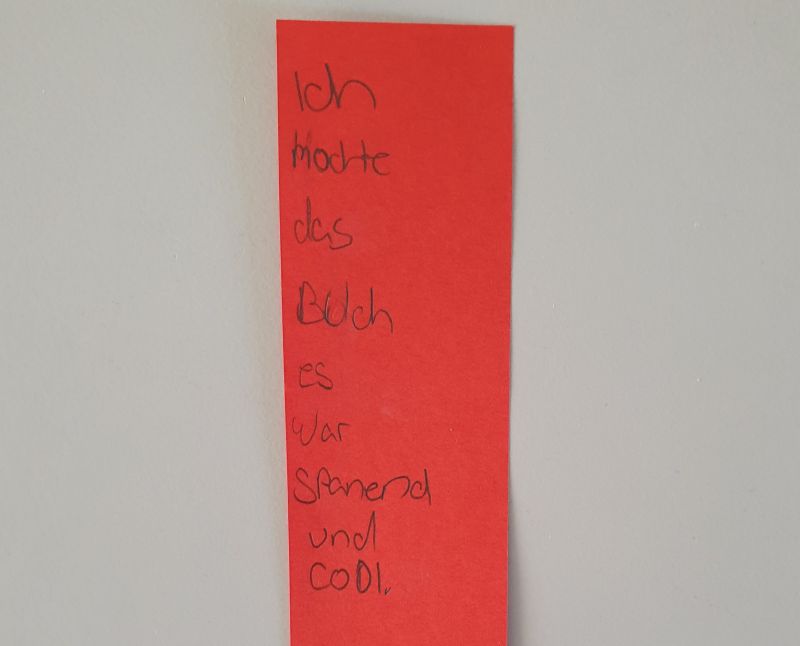 Ich
mochte
das
BUch
es
war
spanend
und
COOl.